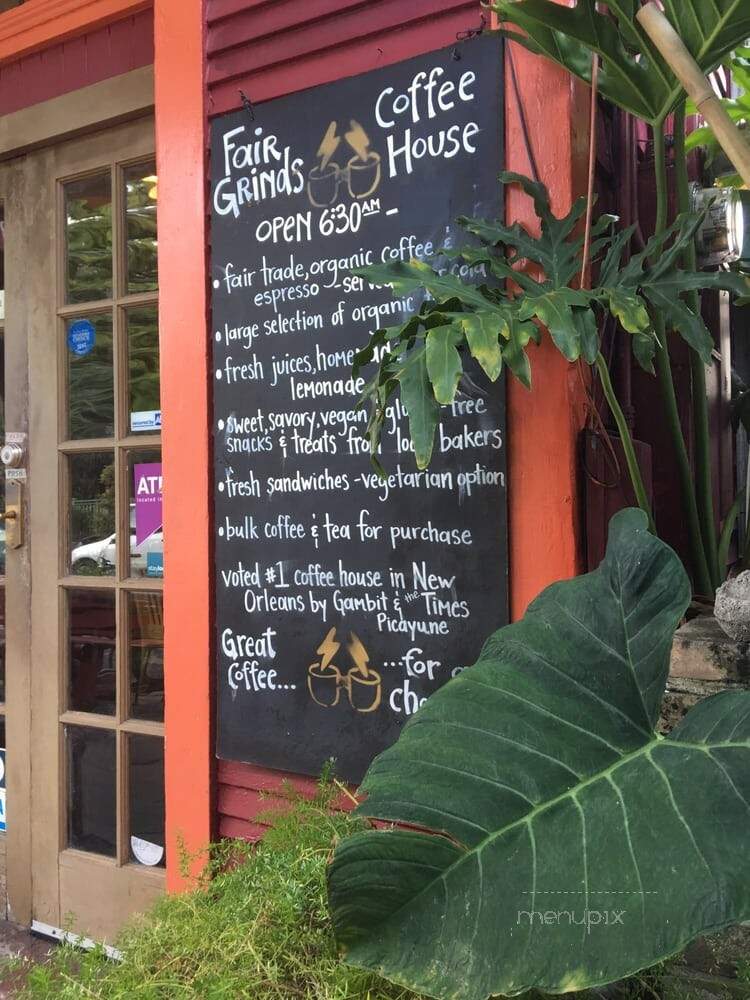 Fair Grinds
Coffee House
OPEN 6:30AM -
• fair trade, organic coffee &
espresso - cold
• large selection of organic
• fresh juices,
lemonade
• sweet, savory, vegan & free
snacks & treats from bakers
• fresh sandwiches - vegetarian option
• bulk coffee & tea for purchase
voted #1 coffee house in New
Orleans by Gambit & the Times
Picayune
Great
Coffee...
...for
AT
menupix